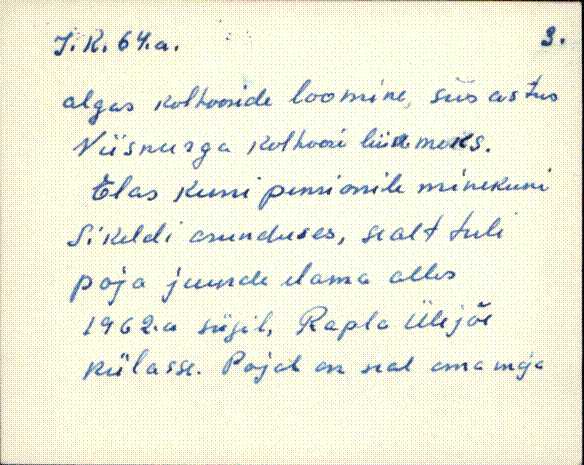 J. R. 64.a. 3.
algas kolhooside loomine, siis astus
Viisnurga kolhoosi liikmeks.
Elas kuni pensionile minekuni
Sikeldi asunduses, sealt tuli
poja juurde elama alles
1962.a sügil, Rapla Ülejõe
külasse. Pojal on seal oma maja